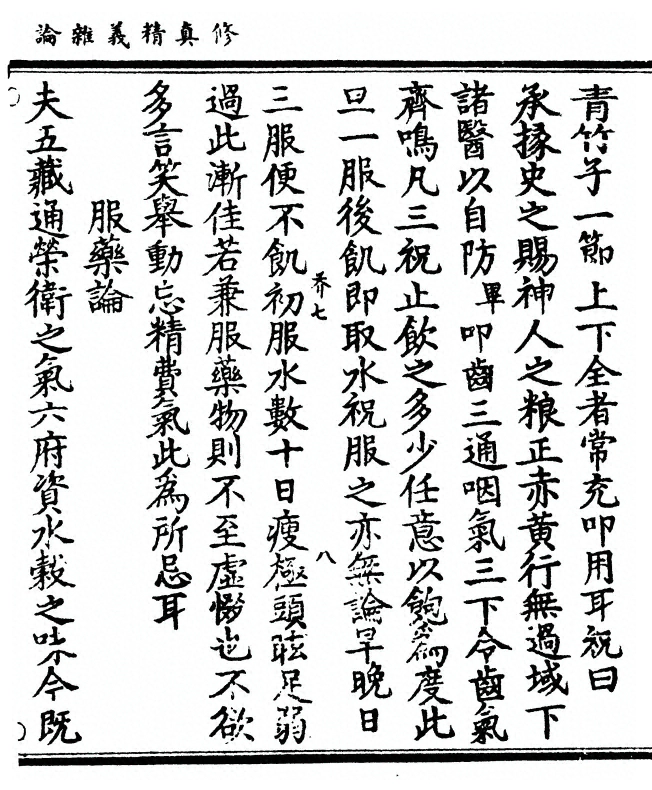 修真精義雜論
青竹子一節上下全者常充叩用耳祝曰
承掾史之賜神人之粮正赤黄行無過域下
諸醫以自防畢叩齒三通咽氣三下令齒氣
齊鳴凡三祝止飲之多少任意以飽爲度此
旦一服後飢即取水祝服之亦無論早晚日
三服便不飢初服水數十日瘦極頭眩足弱
过此漸佳若兼服藥物則不至虛惙也不欲
多言笑舉動忘精費氣此為所忌耳
服藥論
夫五藏通榮衛之氣六府資水穀之味今既